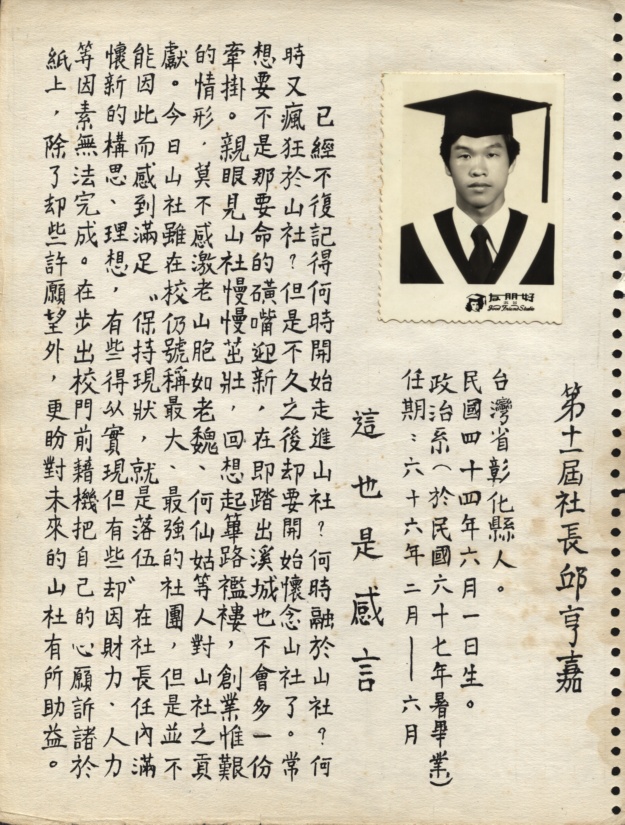 第十一屆社長邱亨嘉
台灣省彰化縣人。
民國四十四年六月一日生。
政治系（於民國六十七年暑畢業）
任期：六十六年二月——六月
這也是感言
已經不復記得何時開始走進山社？何時融於山社？何
時又瘋狂於山社？但是不久之後却要開始懷念山社了。常
想要不是那要命的磺嘴迎新，在即踏出溪城也不會多一份
牽掛。親眼見山社慢慢茁壯，回想起篳路襤褸，創業惟艱
的情形，莫不感激老山胞如老魏、何仙姑等人對山社之貢
獻。今日山社雖在校仍號稱最大、最強的社團，但是並不
能因此而感到滿足〝保持現狀，就是落伍〞在社長任內滿
懷新的構思、理想，有些得以實現但有些却因財力、人力
等因素無法完成。在步出校門前藉機把自己的心願訴諸於
紙上，除了却些許願望外，更盼對未來的山社有所助益。
Good Friend Studio